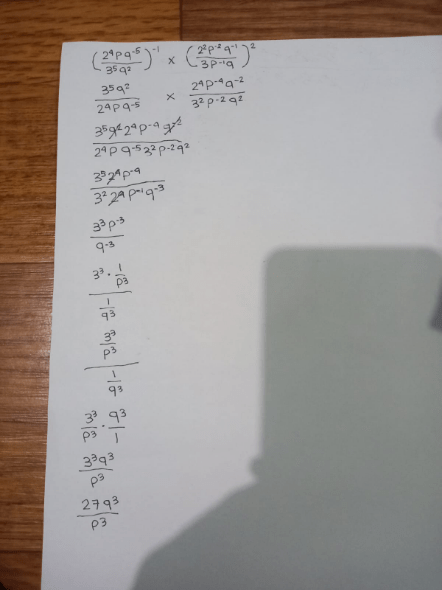 (2⁴pq⁻⁵/3⁵q²)⁻¹ × (2²p⁻²q⁻¹/3p⁻¹q)²
3⁵q²/2⁴pq⁻⁵ × 2⁴p⁻⁴q⁻²/3²p⁻²q²
3⁵q²2⁴p⁻⁴q⁻²/2⁴pq⁻⁵3²p⁻²q²
3⁵2⁴p⁻⁴/3²2⁴p⁻¹q⁻³
3³p⁻³/q⁻³
3³·1/p³/1/q³
3³/p³/1/q³
3³/p³·q³/1
3³q³/p³
27q³/p³